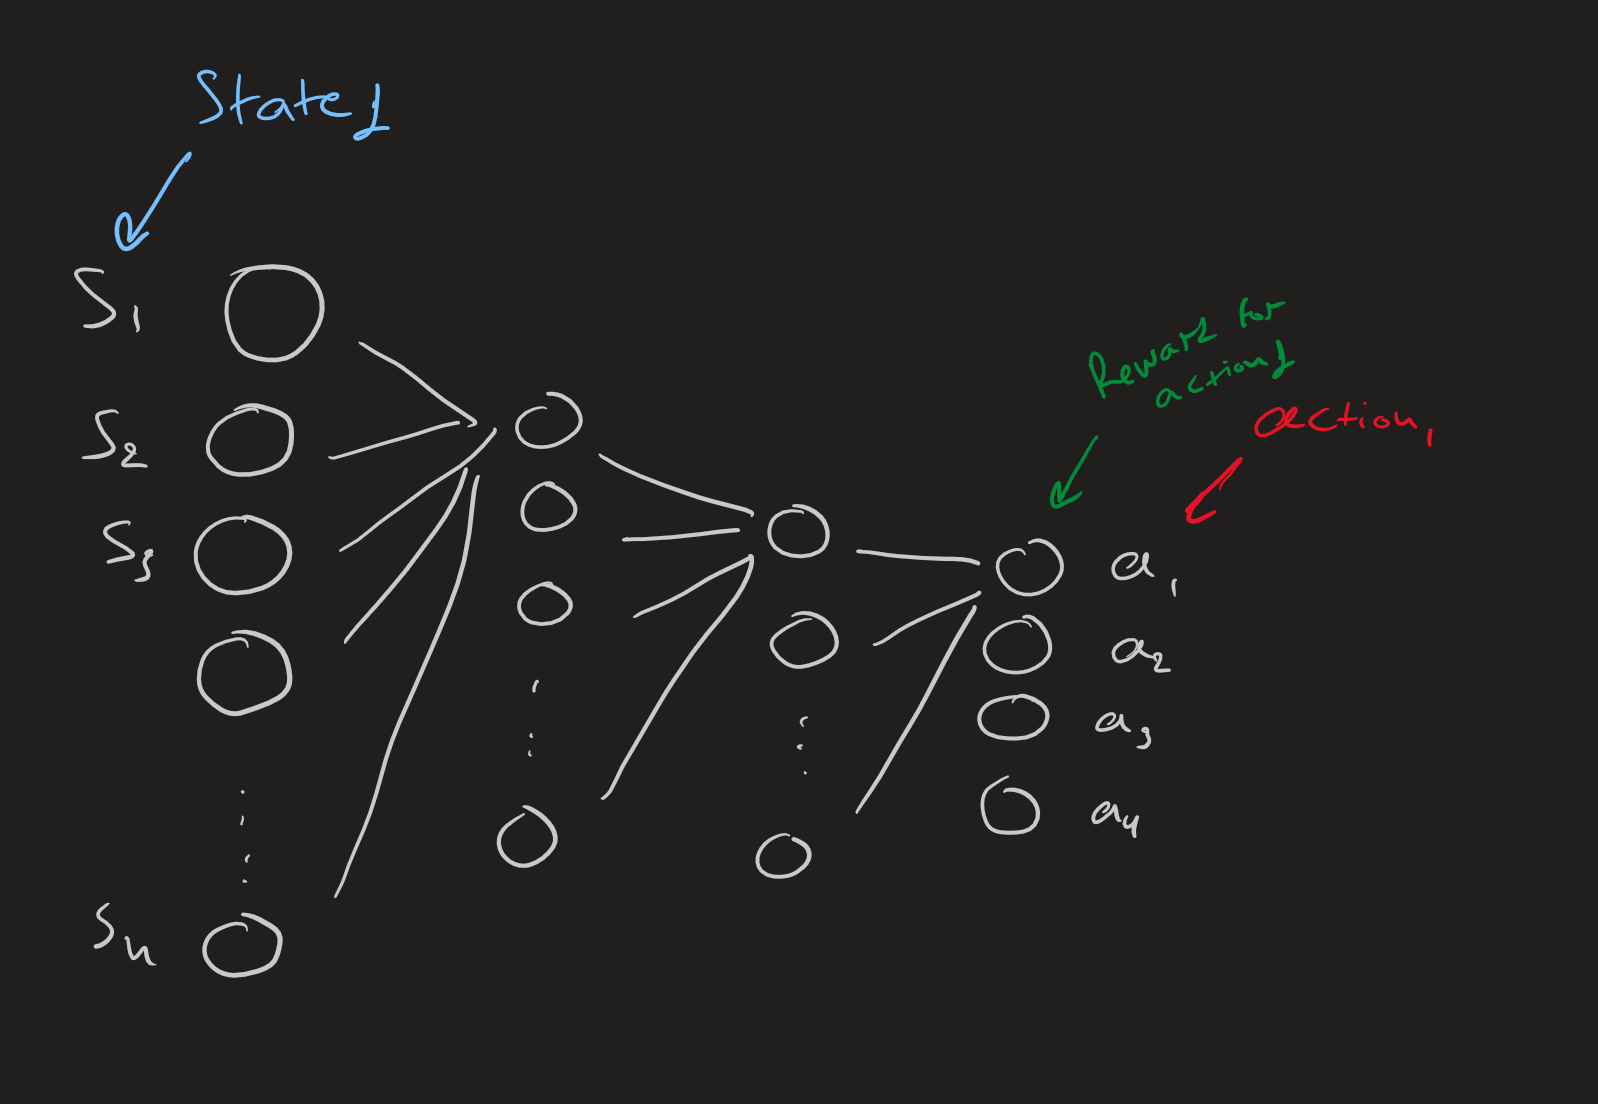 State1
S1
S2
S3
Sn
Reward for
action1
action1
a1
a2
a3
a4